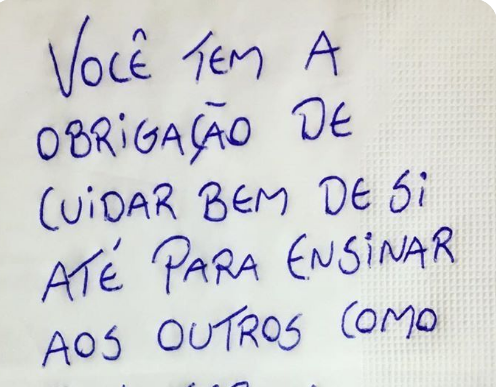 VOCÊ TEM A
OBRiGAÇÃO DE
CUiDAR BEM DE Si
ATÉ PARA ENSiNAR
AOS OUTROS COMO